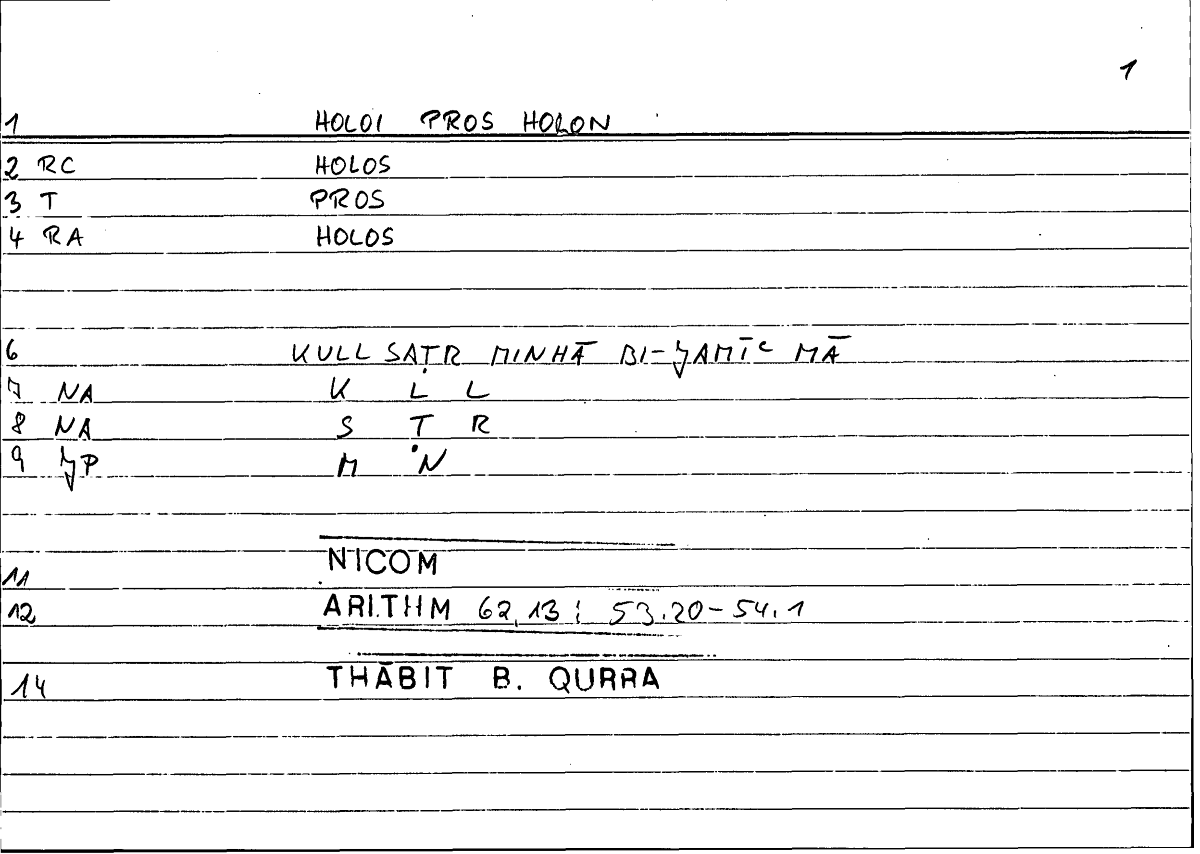 1
1 HOLOI PROS HOLON
2 RC HOLOS
3 T PROS
4 RA HOLOS
6 KULL SAṬR MINHĀ BI-ǦAMĪʿ MĀ
7 NA K L L
8 NA S Ṭ R
9 ǦP M N
NICOM
11
12 ARITHM 62,13 ; 53.20-54.1
14 THĀBIT B. QURRA